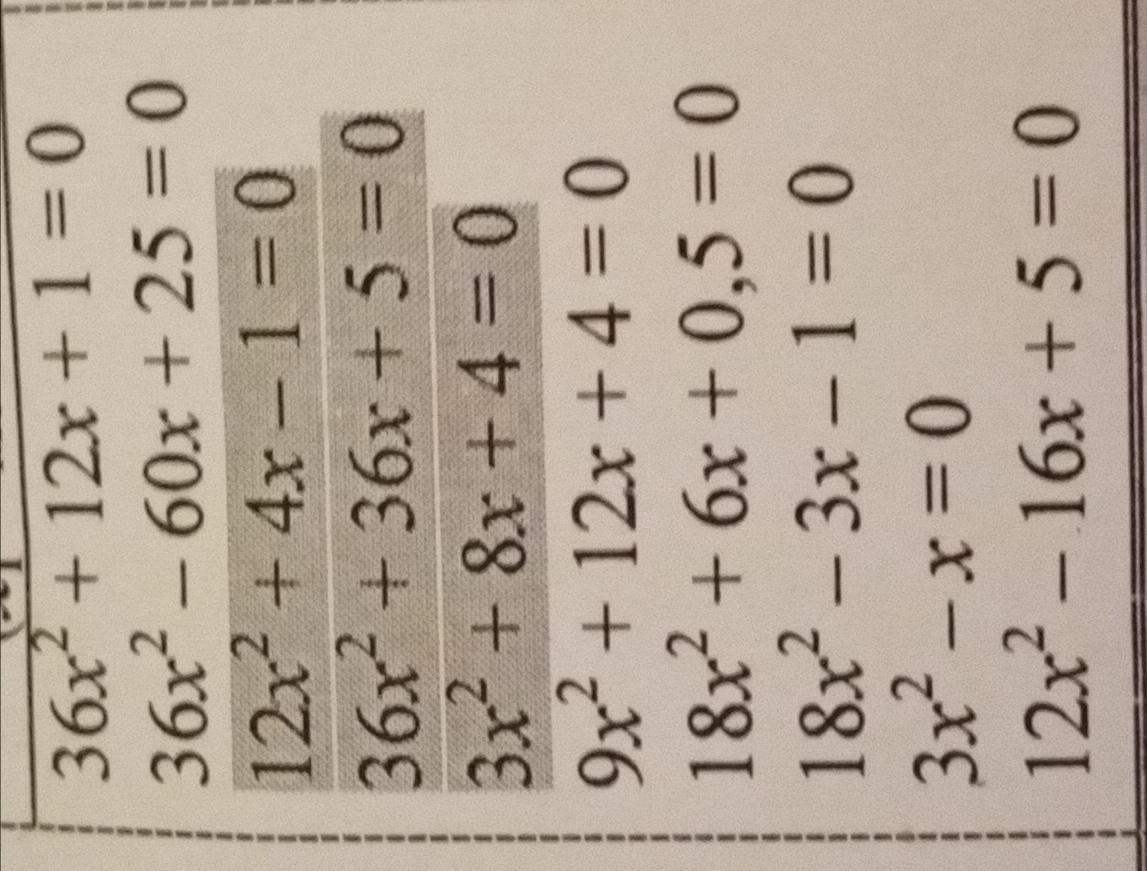 36x² + 12x + 1 = 0
36x² − 60x + 25 = 0
12x² + 4x − 1 = 0
36x² + 36x + 5 = 0
3x² + 8x + 4 = 0
9x² + 12x + 4 = 0
18x² + 6x + 0,5 = 0
18x² − 3x − 1 = 0
3x² − x = 0
12x² − 16x + 5 = 0